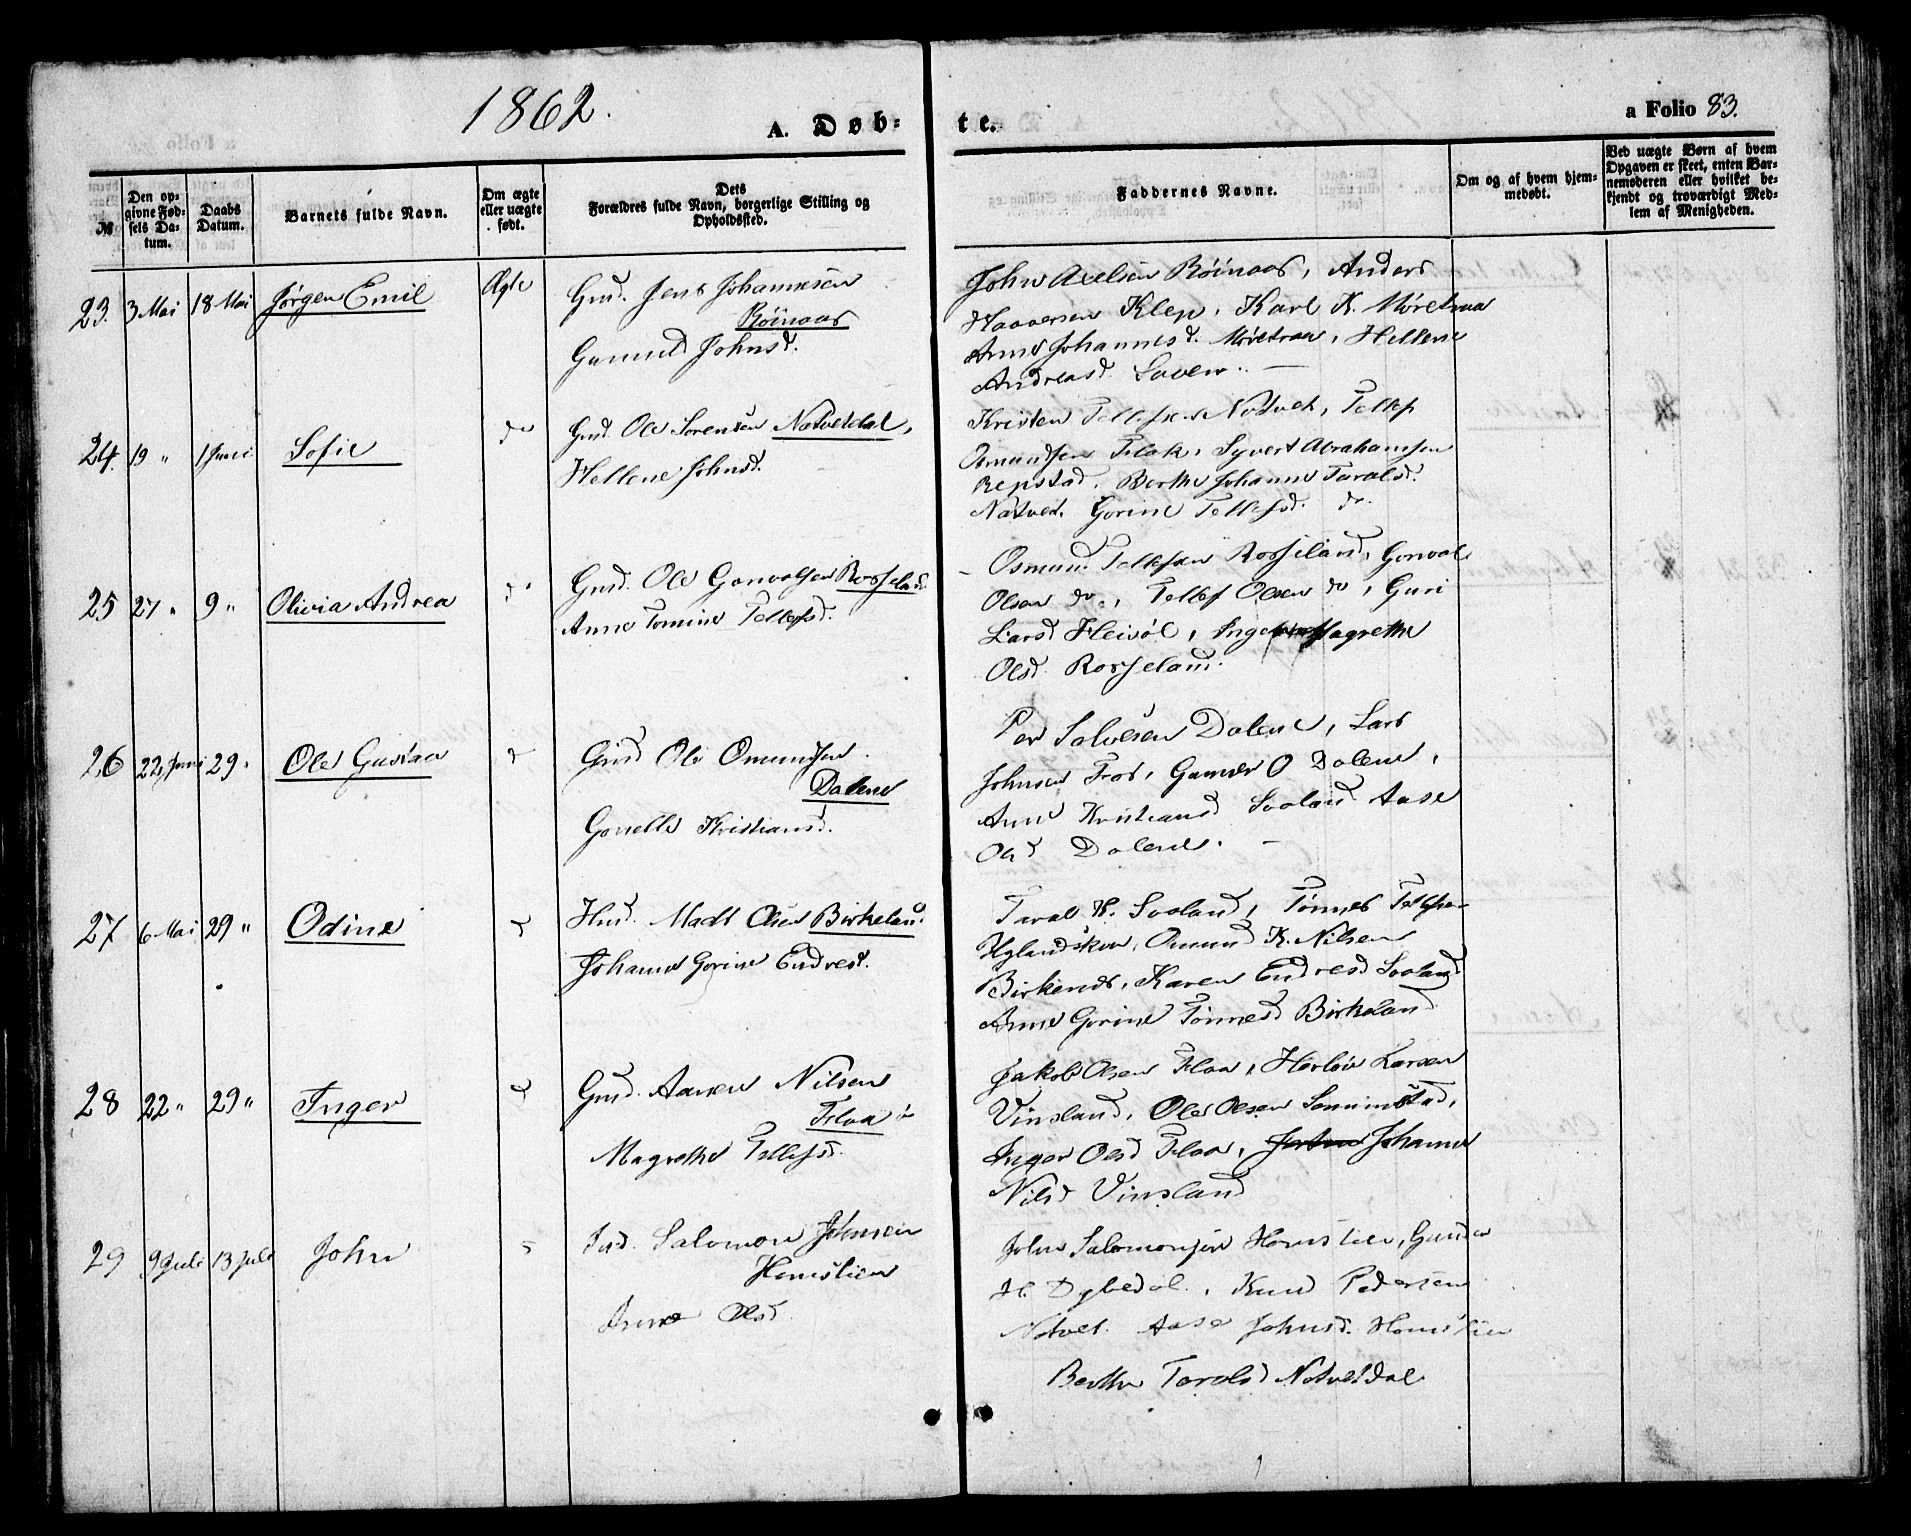 1862.
A. Døb-
te.
a Folio 83.
№
Den op-
givne Fød-
sels Da-
tum.
Daabs
Datum.
Barnets fulde Navn.
Om ægte
eller uægte
født.
Dets
Forældres fulde Navn, borgerlige Stilling og
Opholdssted.
Faddernes Navne.
Om og af hvem hjem-
medøbt.
Ved uægte Børn af hvem
Opgaven er skeet, enten Bar-
nemoderen eller hvilket be-
kjendt og troværdigt Med-
lem af Menigheden.
23. 3 Mai 18 Mai Jørgen Emil Ægte
Gmd. Jens Johannesen
Røinaas
Gunuld Johnsd.
John Axelsen Røinaas, Anders
Haaversen Klep, Karl K. Møretraa
Anne Johannesd. Møretraa, Hellene
Andreasd.
24. 19 " 1 Juni Sofie do
Gmd. Ole Sørensen Natveldal,
Hellene Johnsd.
Kristen Tellefsen Natvet, Tellef
Osmundsen Flak, Syvert Abrahamsen
Repstad, Berthe Johanne Taralsd.
Natvet. Gorine Tellefsd. do.
25 27 " 9 " Olivia Andrea d
Gmd. Ole Gonvolsen Rosseland
Anne Tomine Tellefsd.
Osmund Tellefsen Rosseland, Gonvol
Olsen do., Tellef Olsen do, Guri
Larsd Fleisøl, Magrethe
Olsd. Rosseland.
26 22 Juni 29 " Ole Gustav d
Gmd Ole Omundsen
Dalene
Gonelle Kristiansd.
Per Salvesen Dalene, Lars
Johnsen Fros, Gunder O Dalene,
Anne Kristiansd Sooland Aase
Olsd Dalene.
27 6 Mai 29 " Odine d
Hmd. Mads Olsen Birkeland
Johanne Gorine Endresd.
Taral K. Sooland, Tønnes Tellefsen
Omund K. Nilsen
Birkenes, Karen Endresd Sooland
Anne Gorine Tønnesd Birkeland
28 22 " 29 " Inger d
Gmd. Aanen Nilsen
Flaa
Magrethe Tellefsd.
Jakob Olsen Flaa, Herløv Larsen
Vinsland, Ole Olsen
Inger Olsd Flaa, Johanne
Nilsd Vinsland
29 9 Juli 13 Juli John
Salomon Johnsen
Homstien
Anne Olsd.
John Salomonsen Homstien, Gunder
H. Dybedal, Knud Pedersen
Natvet. Aase Johnsd. Homstien
Berthe Taralsd Natveldal